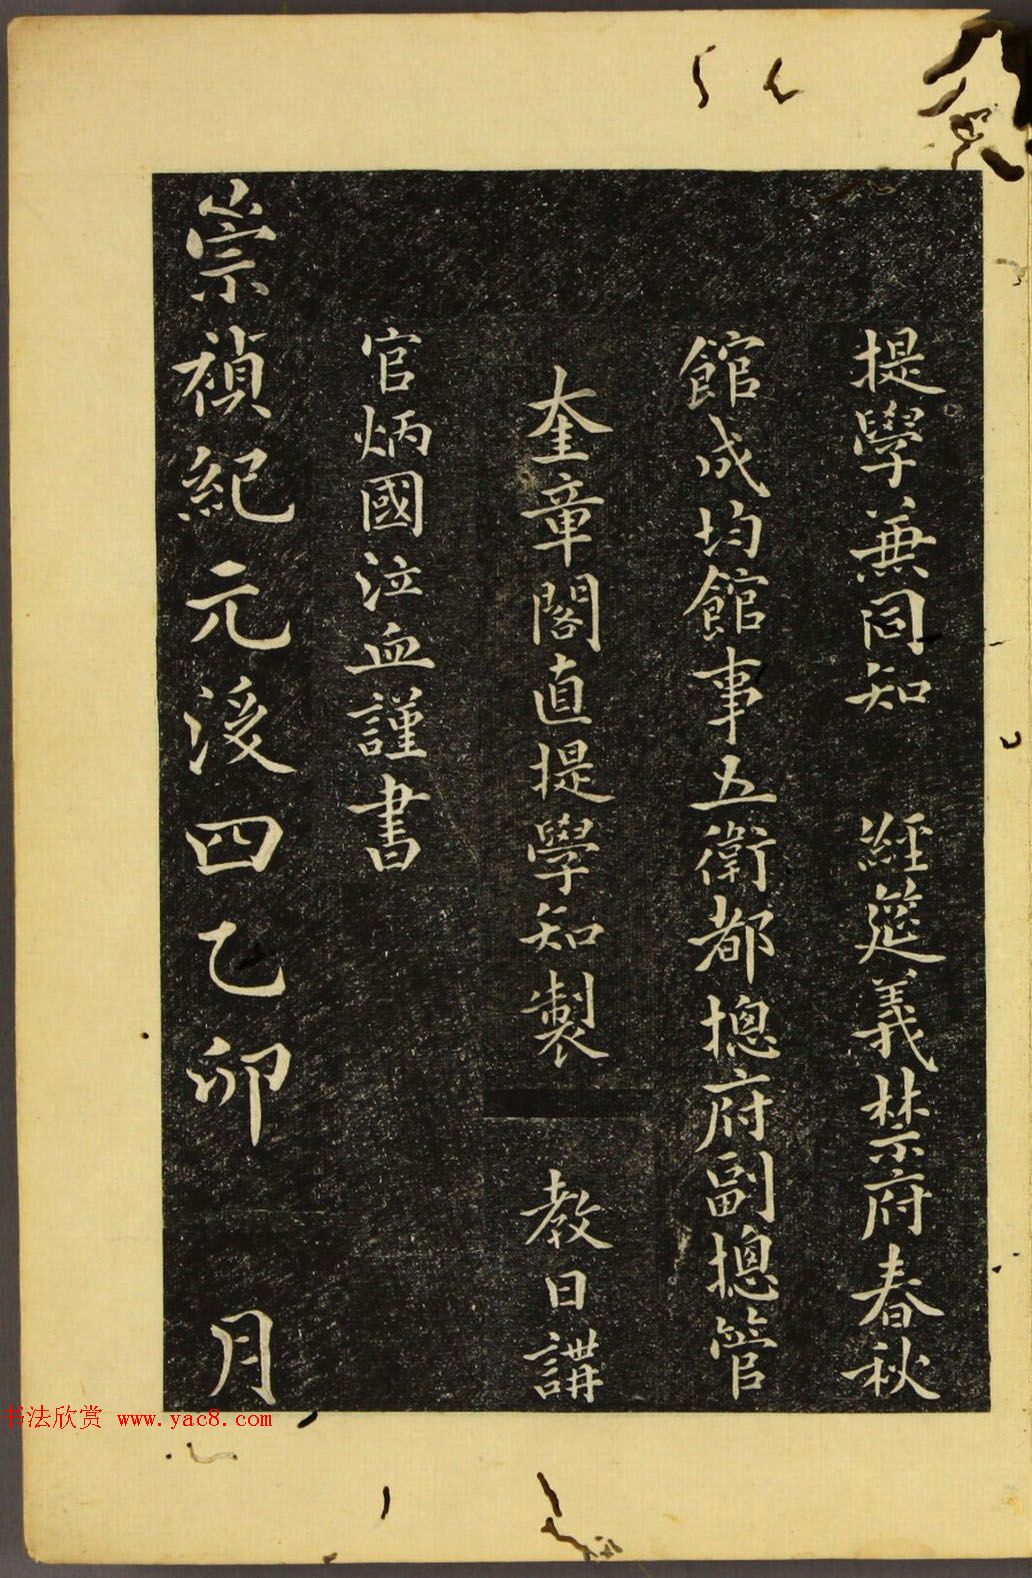 提學兼同知 經筵義禁府春秋
館成均館事五衛都摠府副摠管
奎章閣直提學知製 教日講
官炳國泣血謹書
崇禎紀元後四乙卯 月
书法欣赏 www.yac8.com